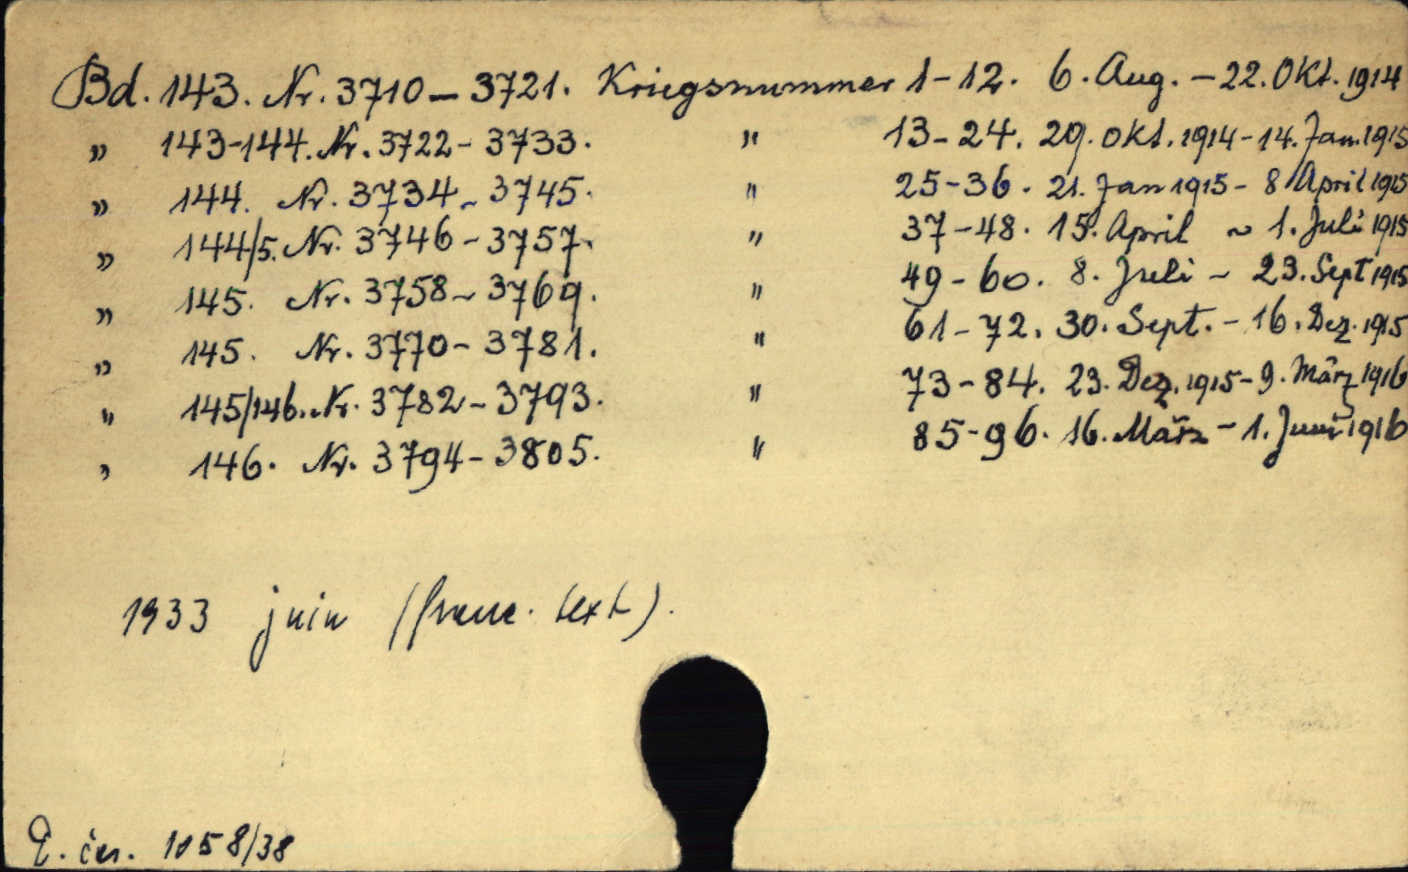 Bd. 143. Nr. 3710 – 3721. Kriegsnummer 1 – 12. 6. Aug. – 22. Okt. 1914
" 143-144. Nr. 3722 - 3733. " 13 - 24. 29. Okt. 1914 - 14. Jan. 1915
" 144. Nr. 3734 - 3745. " 25 - 36. 21. Jan 1915 - 8 April 1915
" 144/5. Nr. 3746 - 3757. " 37 - 48. 15. April - 1. Juli 1915
" 145. Nr. 3758 - 3769. " 49 - 60. 8. Juli - 23. Sept 1915
" 145. Nr. 3770 - 3781. " 61 - 72. 30. Sept. - 16. Dez. 1915
" 145/146. Nr. 3782 - 3793. " 73 - 84. 23. Dez. 1915 - 9. März 1916
" 146. Nr. 3794 - 3805. " 85 - 96. 16. März - 1. Juni 1916
1933 juin (franc. text).
čís. 1058/38